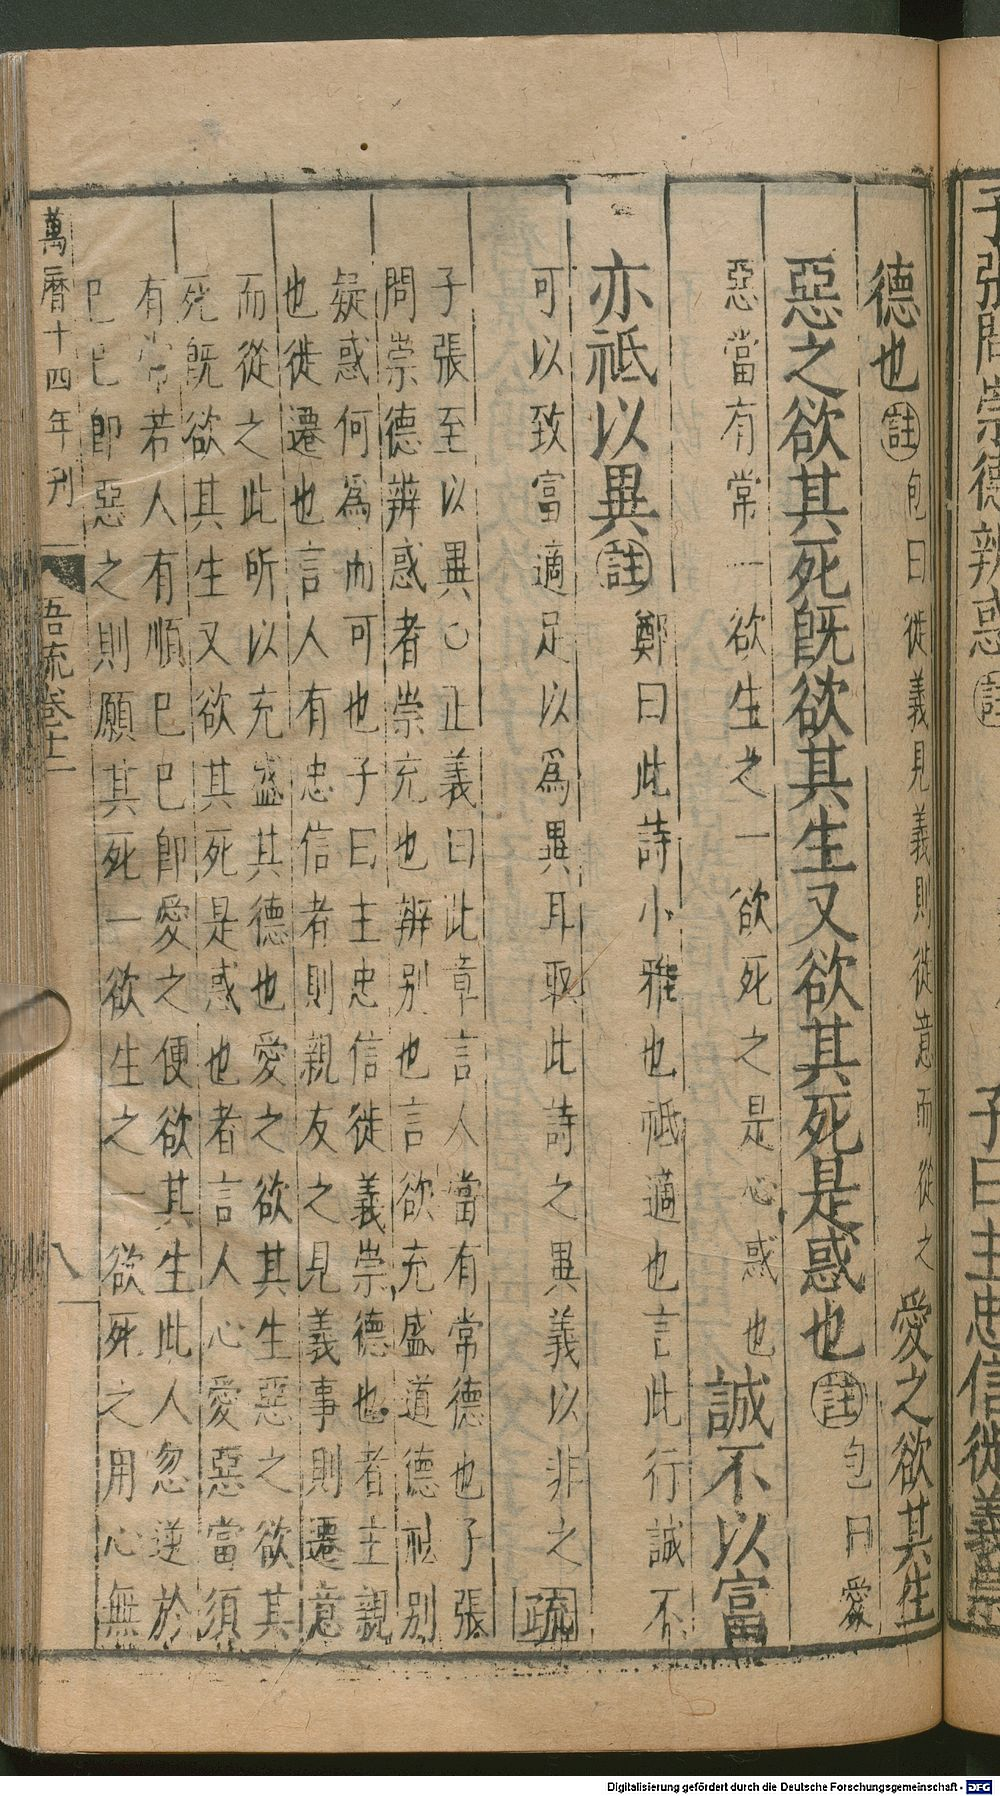 子張問崇德辨惑註
子曰主忠信徙義崇
德也註包曰徙義見義則徙意而從之愛之欲其生
惡之欲其死既欲其生又欲其死是惑也註包曰愛
惡當有常一欲生之一欲死之是心惑也誠不以富
亦祗以異註鄭曰此詩小雅也祗適也言此行誠不
可以致富適足以為異耳取此詩之異義以非之疏
子張至以異○正義曰此章言人當有常德也子張
問崇德辨惑者崇充也辨别也言欲充盛道德祛别
疑惑何爲而可也子曰主忠信徙義崇德也者主親
也徙遷也言人有忠信者則親友之見義事則遷意
而從之此所以充盛其德也愛之欲其生惡之欲其
死既欲其生又欲其死是惑也者言人心愛惡當須
有常若人有順巳巳即愛之便欲其生此人忽逆於
巳巳即惡之則願其死一欲生之一欲死之用心無
萬曆十四年刋
吾疏卷十二
八
Digitalisierung gefördert durch die Deutsche Forschungsgemeinschaft - DFG